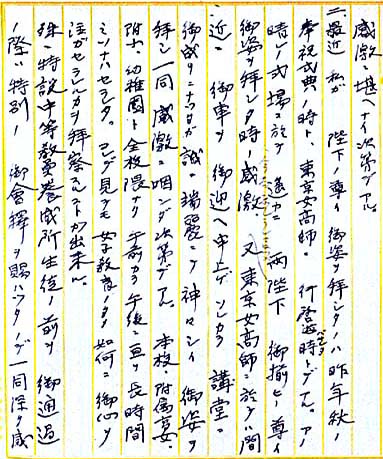 感激ニ堪ヘナイ次第デアル。
二、最近 私ガ 陛下ノ尊イ御姿ヲ拝シタノハ昨年秋ノ
奉祝式典ノ時ト、東京女高師ニ 行啓ノ時トデアル。アノ
晴レノ式場ニ於テ 遥カニ 両陛下 御揃ヒノ尊イ
御姿ヲ拝シタ時ノ感激 又東京女高師ニ於テハ間
近ニ 御車ヲ 御迎ヘ申上ゲ ソレカラ 講堂ニ
御成リニナツタガ 誠ニ 端麗ナ 神々シイ 御姿ヲ
拝シ一同 感激ニ咽ンダ次第デアル。本校、附属高女、
附小、幼稚園ト全校隈ナク 午前カラ午後ニ亘ル長時間
ミソナハセラレタ。コレヲ見テモ 女子教育ノタメ 如何ニ 御心ヲ
注ガセラレルカヲ 拝察スルコトガ出来ル。
殊ニ 特設中等教員養成所生徒ノ前ヲ 御通過
ノ際ハ 特別ノ 御会釋ヲ賜ハツタノデ 一同深ク感